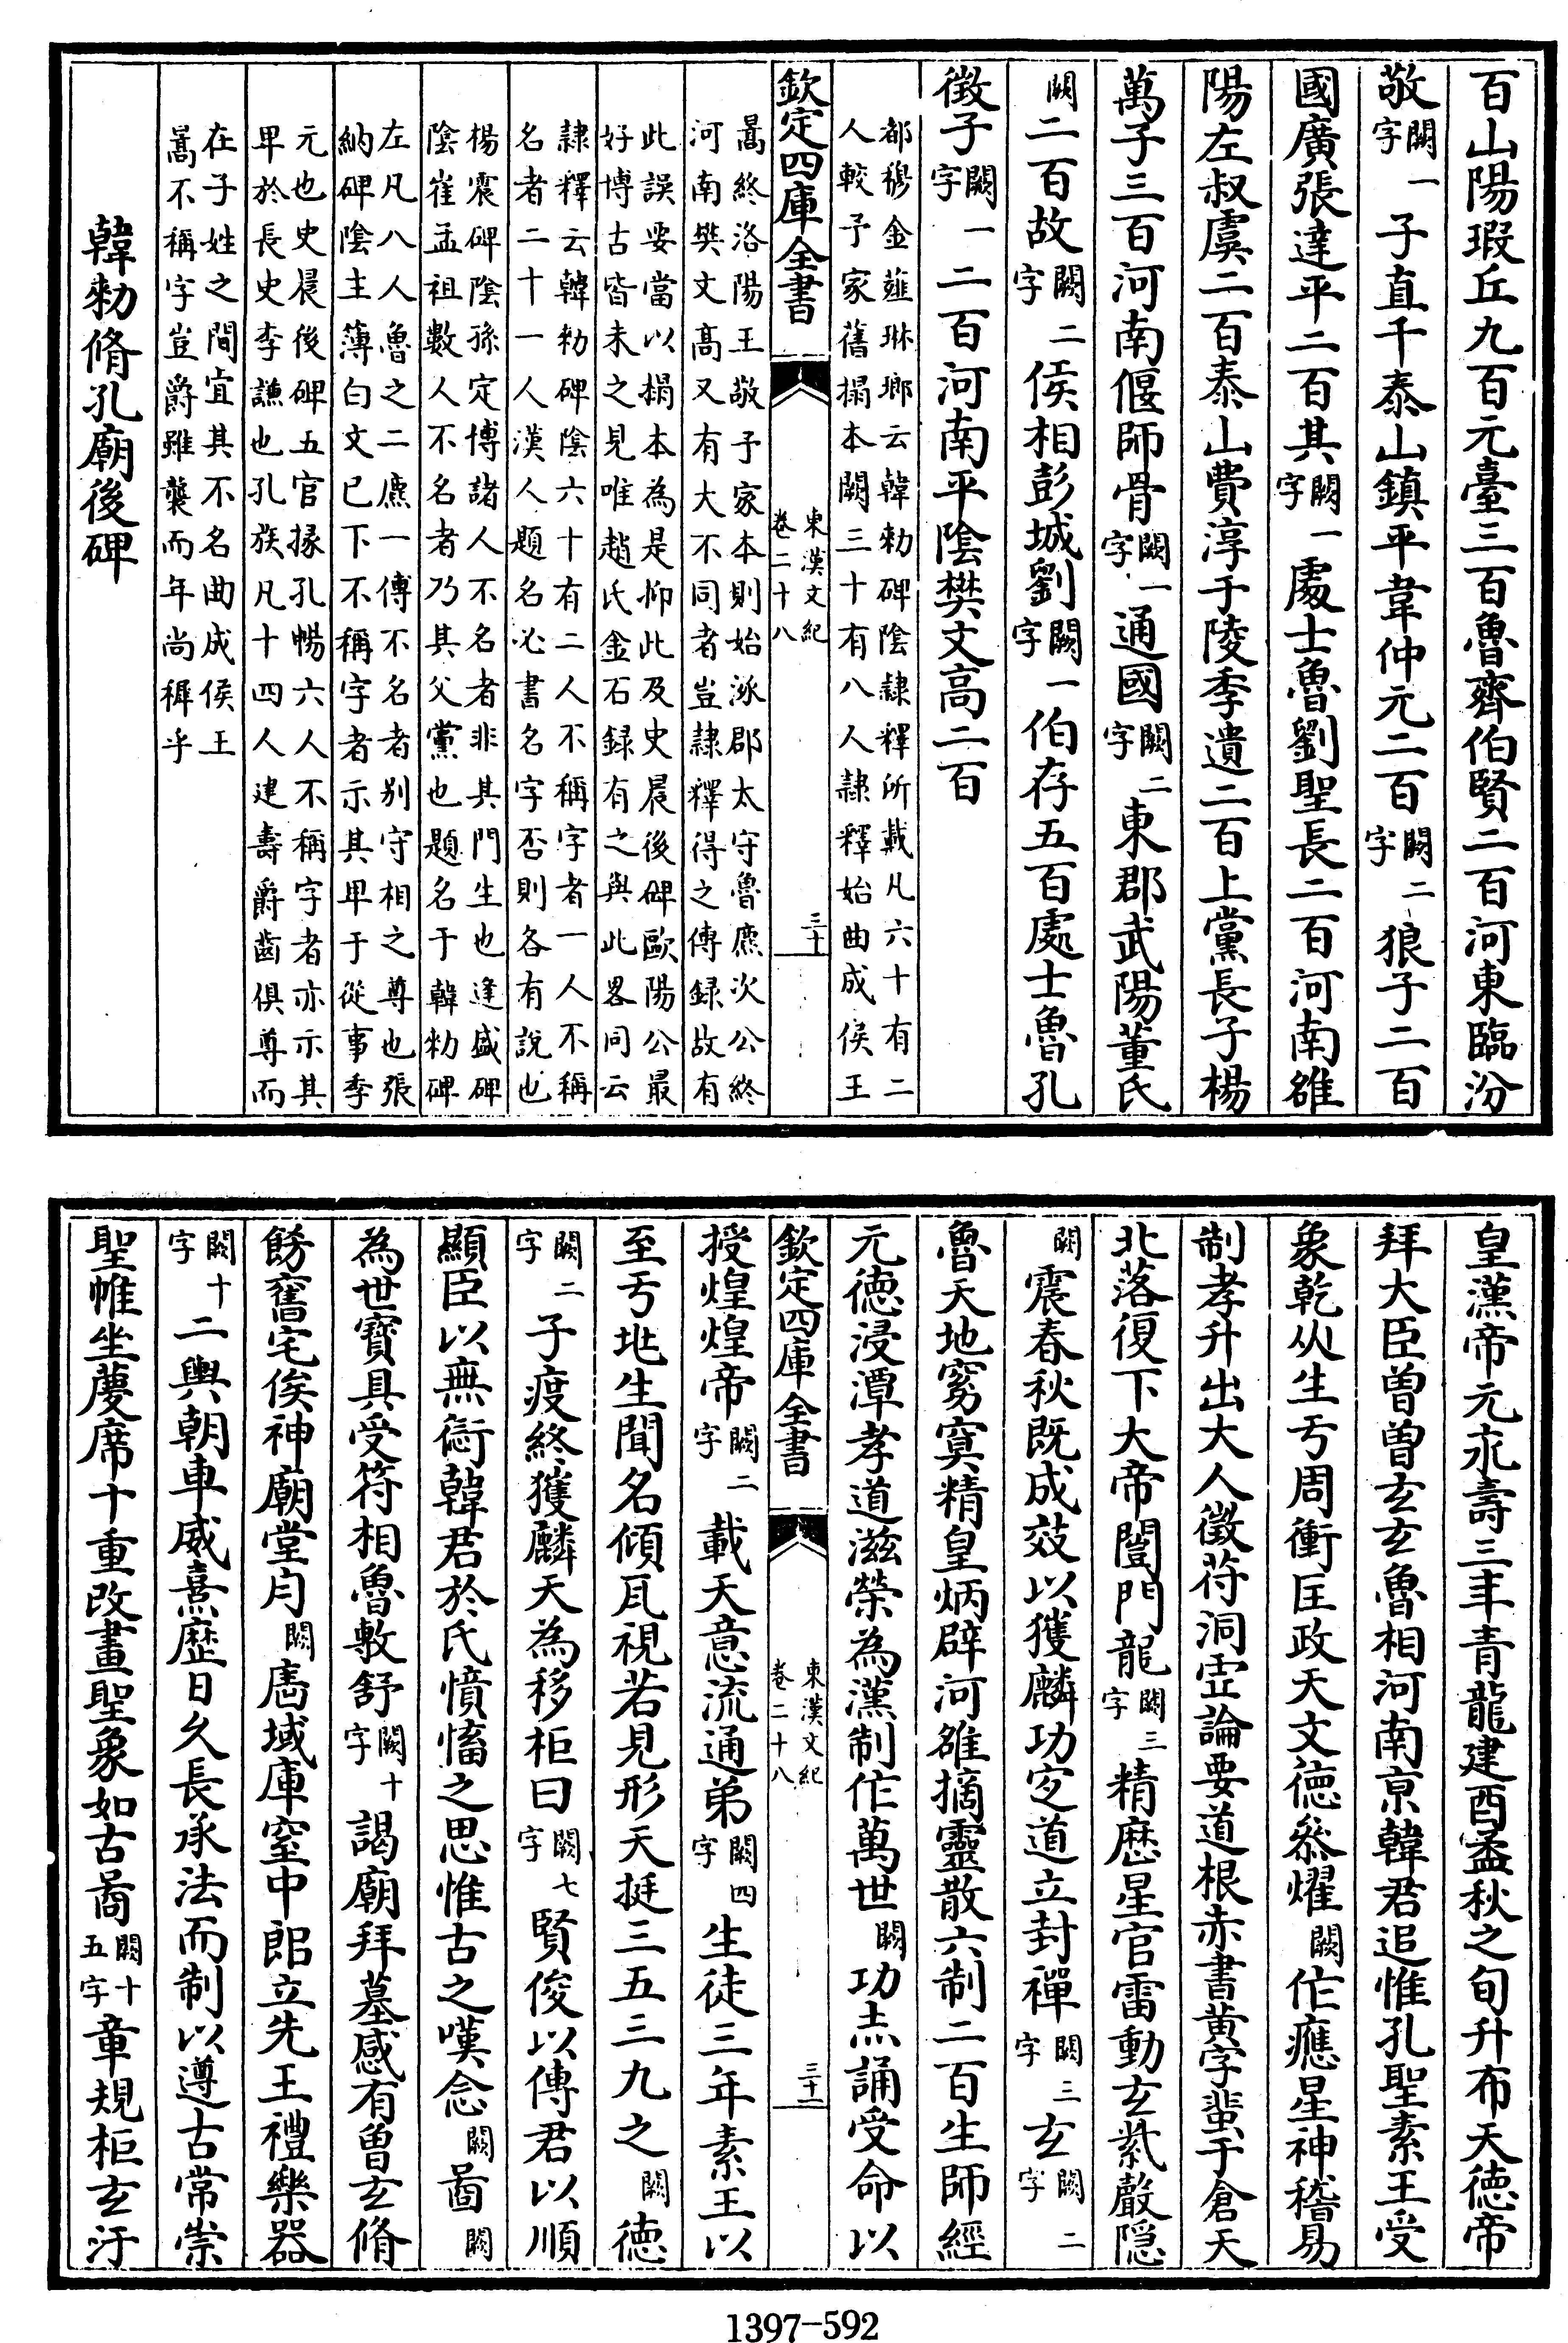 百山陽瑕丘九百元臺三百魯齊伯賢二百河東臨汾
敬闕一字子直千泰山鎮平韋仲元二百闕二字狼子二百
國廣張達平二百其闕一字處士魯劉聖長二百河南雒
陽左叔虞二百泰山費淳于陵季遺二百上黨長子楊
萬子三百河南偃師骨闕一字通國闕二字東郡武陽董氏
闕二百故闕二字侯相彭城劉闕一字伯存五百處士魯孔
徵子闕一字二百河南平陰樊文高二百
都穆金薤琳瑯云韓勑碑陰隸釋所載凡六十有二
人較予家舊搨本闕三十有八人隸釋始曲成侯王
欽定四庫全書
東漢文紀
卷二十八
三十
暠終洛陽王敬予家本則始涿郡太守魯麃次公終
河南樊文高又有大不同者豈隸釋得之傳録故有
此誤要當以搨本為是抑此及史晨後碑歐陽公最
好博古皆未之見唯趙氏金石録有之與此畧同云
隸釋云韓勑碑陰六十有二人不稱字者一人不稱
名者二十一人漢人題名必書名字否則各有說也
楊震碑陰孫定博諸人不名者非其門生也逢盛碑
陰崔孟祖數人不名者乃其父黨也題名于韓勑碑
左凡八人魯之二麃一傅不名者别守相之尊也張
納碑陰主簿白文已下不稱字者示其卑于從事季
元也史晨後碑五官掾孔暢六人不稱字者亦示其
卑於長史李謙也孔族凡十四人建壽爵齒俱尊而
在子姓之間宜其不名曲成侯王
暠不稱字豈爵雖襲而年尚穉乎
韓勑脩孔廟後碑
皇漢帝元永壽三年青龍建酉孟秋之旬升布天徳帝
拜大臣曾曾玄玄魯相河南京韓君追惟孔聖素王受
象乾从生亏周衝匡政天文徳叅燿闕作應星神稽易
制孝升出大人徵苻洞䆗論要道根赤書黄字蜚于倉天
北落復下大帝闓門龍闕三字精歴星官雷動玄紫嚴隠
闕震春秋既成效以獲麟功㝎道立封禪闕三字玄闕二字
魯天地窈㝠精皇炳辟河雒摘靈散六制二百生師經
元德浸潭孝道滋榮為漢制作萬世闕功夲誦受命以
欽定四庫全書
東漢文紀
卷二十八
三十一
授煌煌帝闕二字載天意流通弟闕四字生徒三年素王以
至亏𠀉生聞名傾瓦視若見形天挺三五三九之闕德
闕二字子疫終獲麟天為移柜曰闕七字賢俊以傳君以順
顯臣以無衍韓君於氏憤㥄之思惟古之嘆念闕啚闕
為世寳具受符相魯敷舒闕十字謁廟拜墓感有曽玄脩
餝奮宅俟神廟堂㡯闕啚域庫窒中郎立先王禮樂器
闕十字二輿朝車威熹歴日久長承法而制以遵古常崇
聖帷坐蔓席十重改畫聖象如古啚闕十五字章規柜玄汙
1397-592